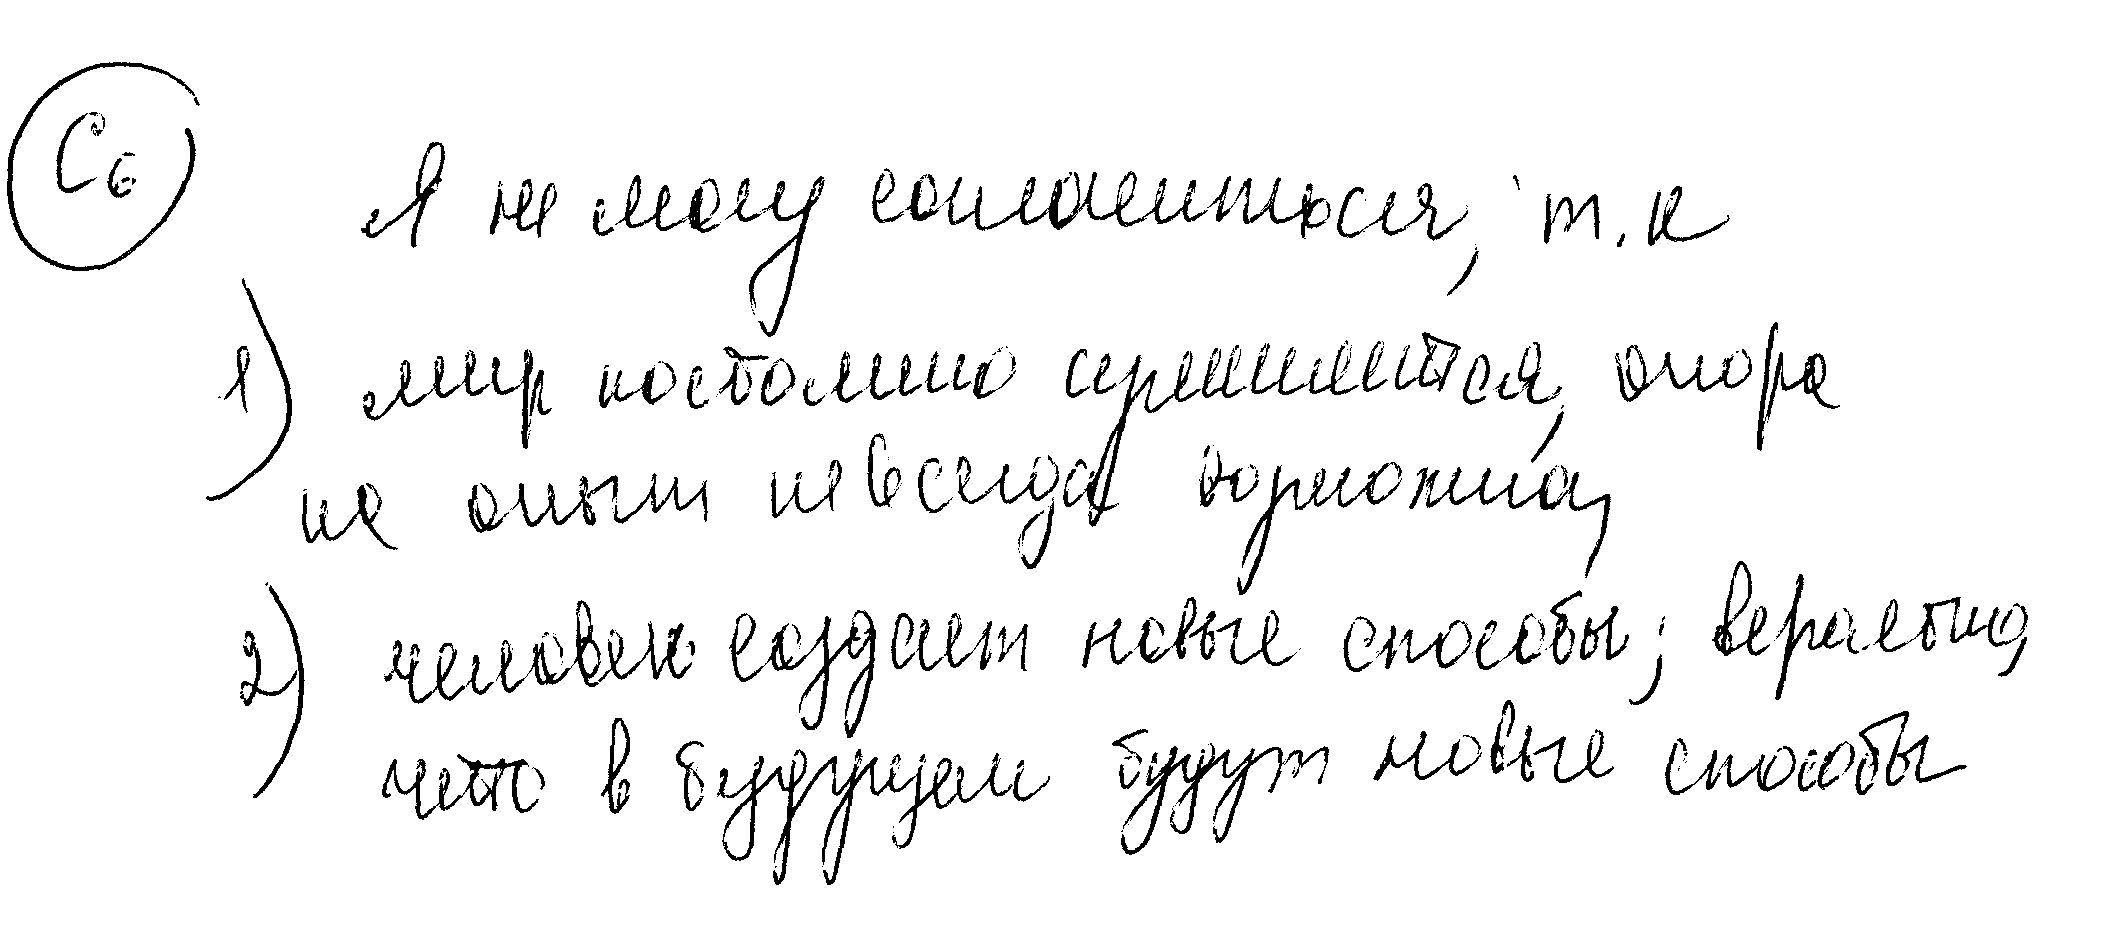 С6
Я не могу согласиться, т.к
1) мир постоянно опора
на опыт не всегда
2) человек создает новые способы; вероятно,
что в будущем будут новые способы